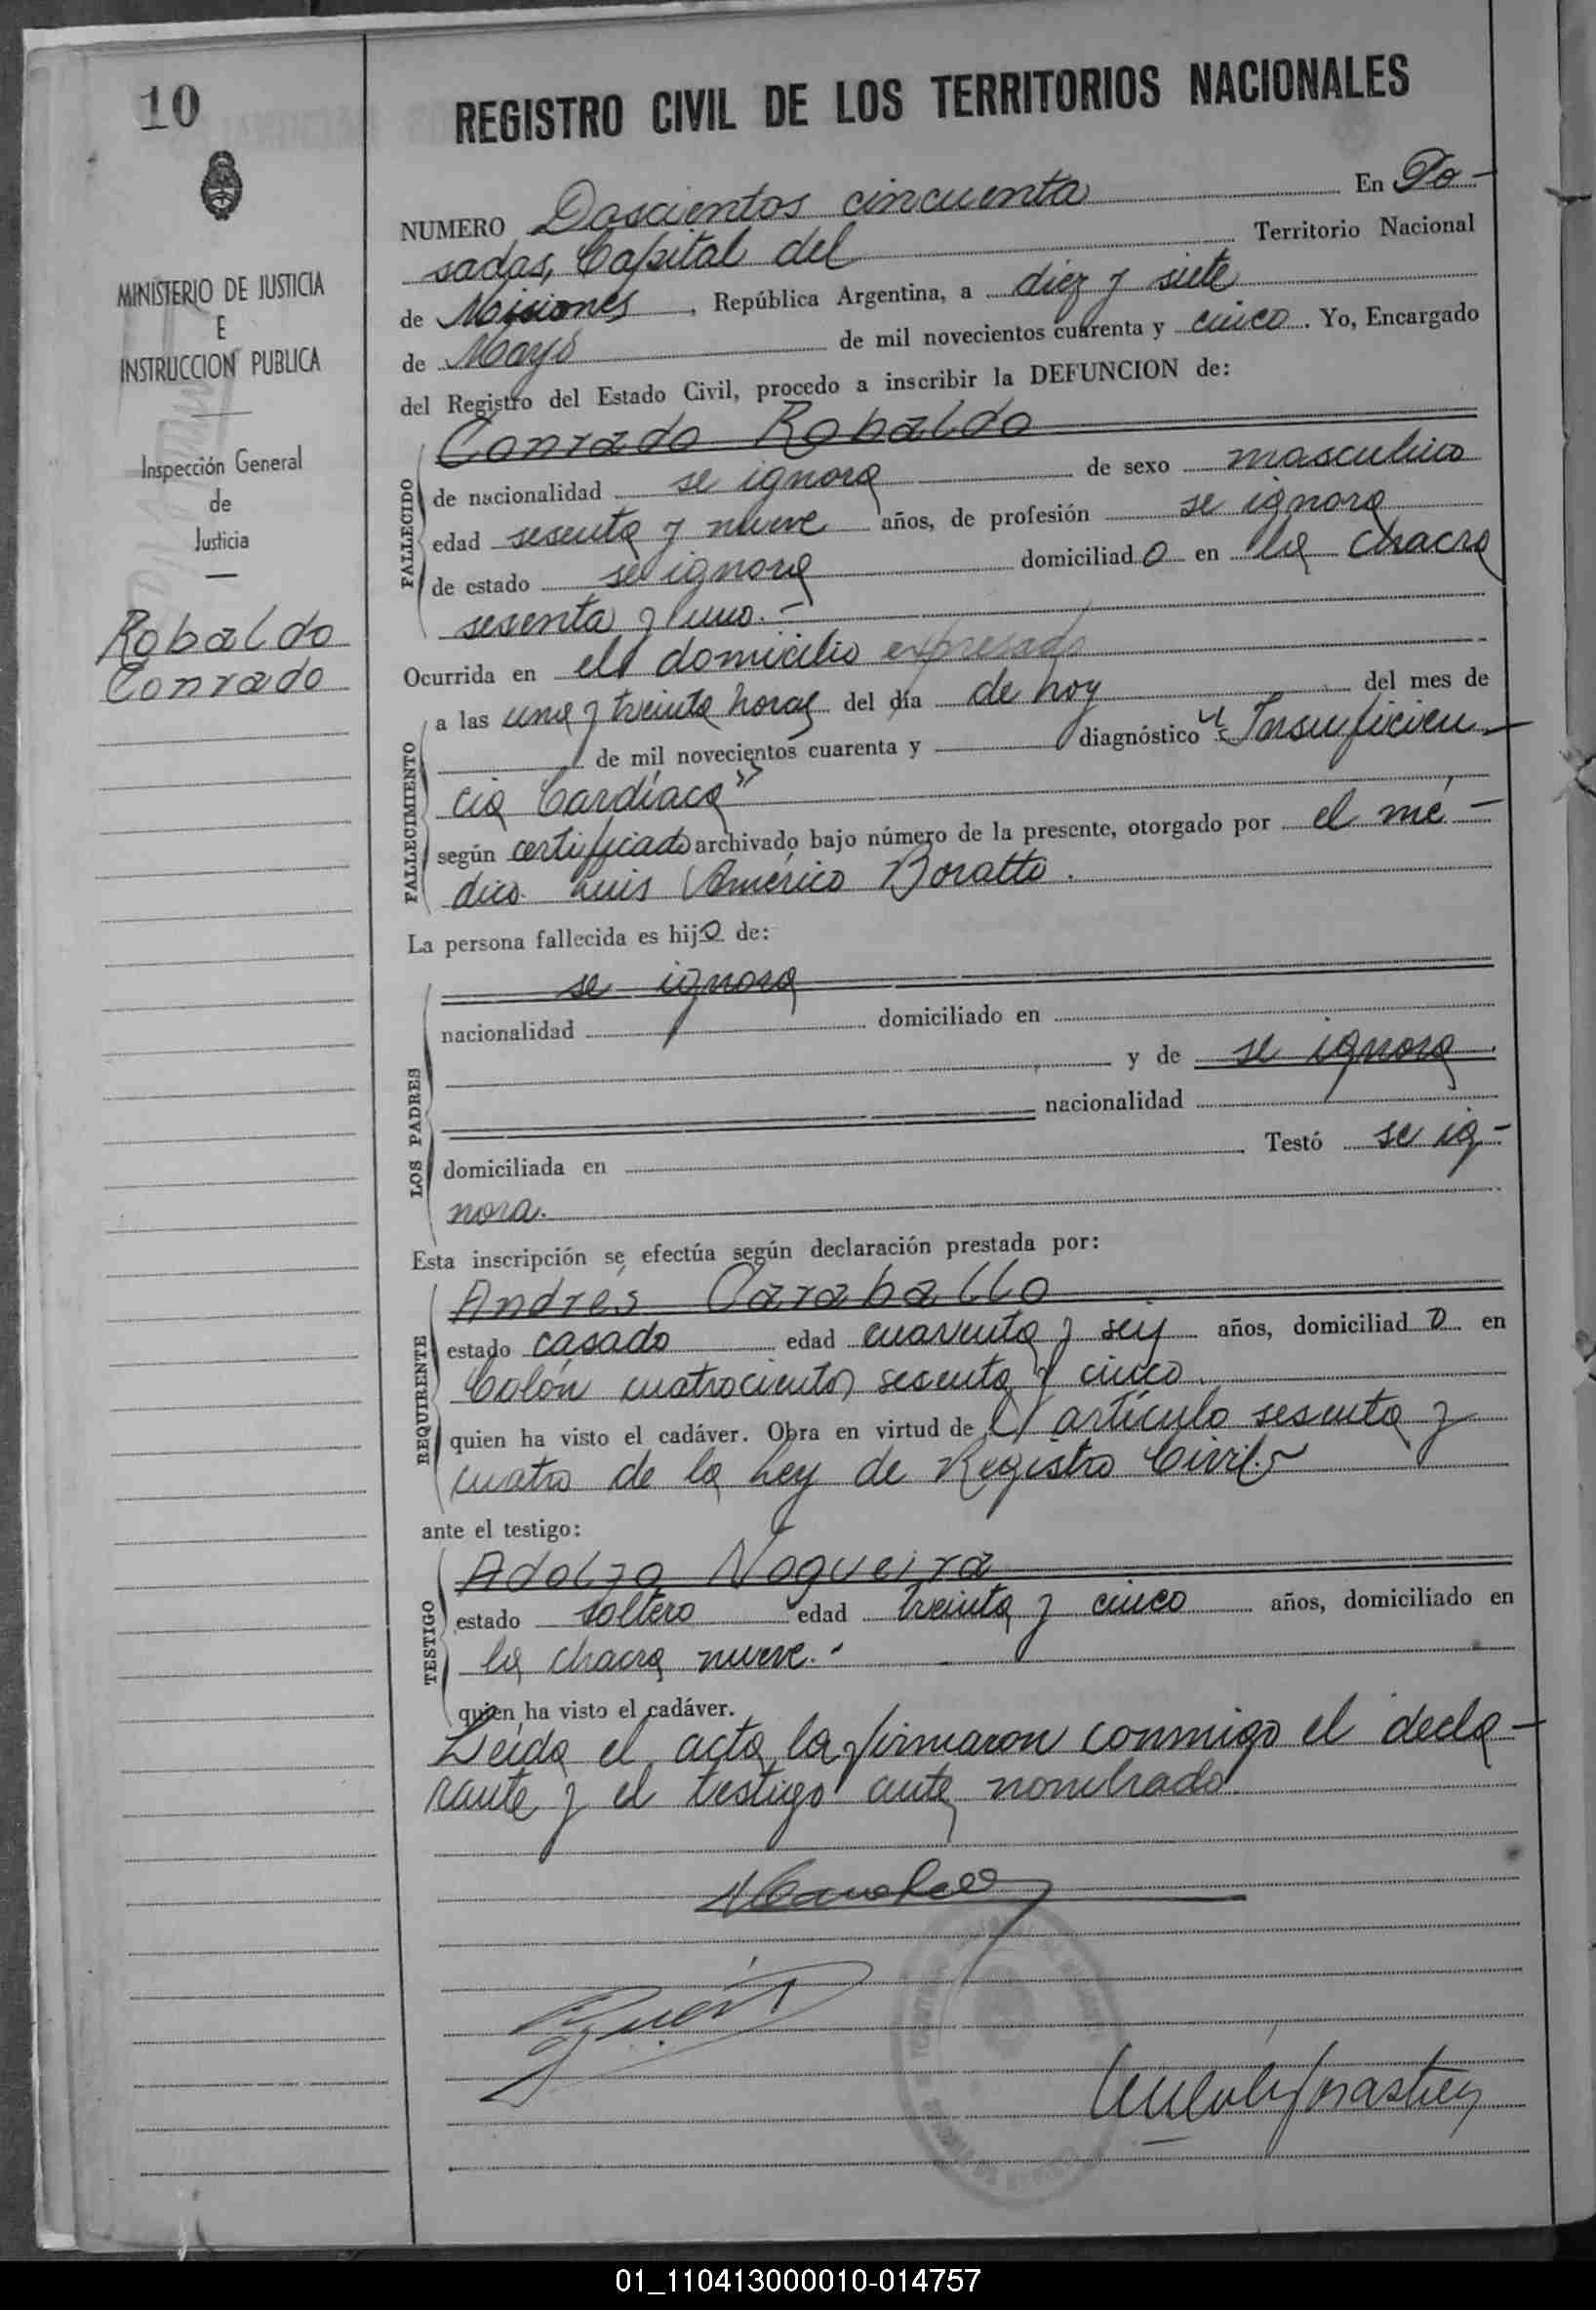 10
MINISTERIO DE JUSTICIA
E
INSTRUCCION PUBLICA
Inspección General
de
Justicia
Robaldo
Conrado
REGISTRO CIVIL DE LOS TERRITORIOS NACIONALES
NUMERO Doscientos cincuenta En Po-
sadas, Capital del Territorio Nacional
de Misiones, República Argentina, a diez y siete
de Mayo de mil novecientos cuarenta y cinco. Yo, Encargado
del Registro del Estado Civil, procedo a inscribir la DEFUNCION de:
FALLECIDO
Conrado Robaldo
de nacionalidad se ignora de sexo masculino
edad sesenta y nueve años, de profesión se ignora
de estado se ignora domiciliado en la chacra
sesenta y uno.-
Ocurrida en el domicilio expresado
FALLECIMIENTO
a las una y treinta horas del día de hoy del mes de
de mil novecientos cuarenta y diagnóstico "Insuficien-
cia Cardíaca"
según certificado archivado bajo número de la presente, otorgado por el mé-
dico Luis Américo Boratto.
La persona fallecida es hijo de:
LOS PADRES
se ignora
nacionalidad domiciliado en
y de se ignora
nacionalidad
domiciliada en Testó se ig-
nora.
Esta inscripción se efectúa según declaración prestada por:
REQUIRENTE
Andrés Caraballo
estado casado edad cuarenta y seis años, domiciliado en
Colón cuatrocientos sesenta y cinco.
quien ha visto el cadáver. Obra en virtud del artículo sesenta y
cuatro de la Ley de Registro Civil.-
ante el testigo:
TESTIGO
Adolfo Nogueira
estado soltero edad treinta y cinco años, domiciliado en
la chacra nueve.-
quien ha visto el cadáver.
Leida el acta la firmaron conmigo el decla-
rante y el testigo antes nombrado.
01_110413000010-014757